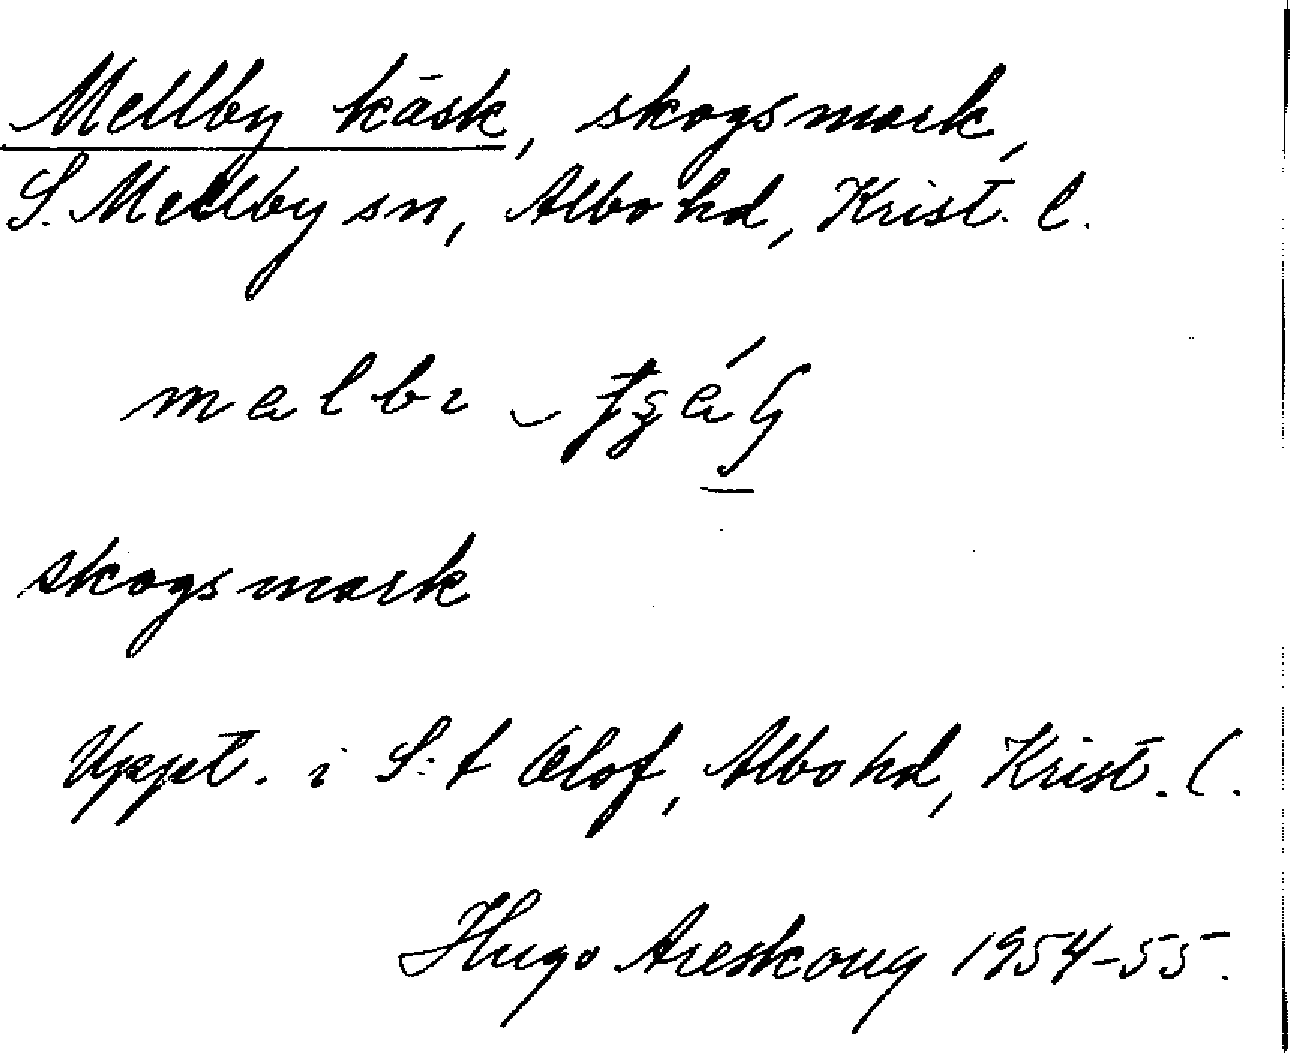 Mellby käsk, skogsmark,
S. Mellby sn, Albo hd, Krist. l.
skogsmark
Uppt. i S:t Olof, Albo hd, Krist. l.
Hugo Areskoug 1954-55.